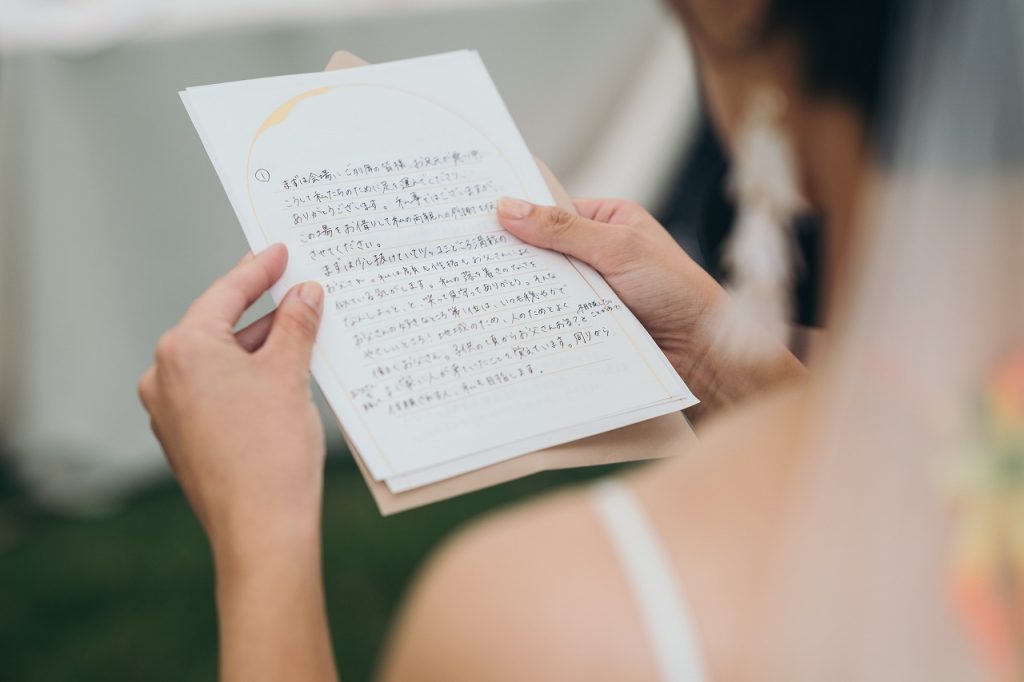 ①
まずは会場にご列席の皆様、お足元が悪い中、
こうして私たちのために足を運んでくださり、
ありがとうございます。私事ではございますが、
この場をお借りして私の両親への感謝を伝え
させてください。
まずは少し抜けていてツッコミどころ満載の
お父さん。私は顔も性格もお父さんによく
似ている気がします。私の落ち着きのなさを
なんしよっと、と笑って見守ってありがとう。そんな
お父さんの好きなところ第1位は、いつも穏やかで
やさしいところ！地域のため、人のためとよく
働くお父さん。子供の頃からお父さんあること
よく 人が来ていたことを覚えています。周りから
信頼される人、私も目指します。